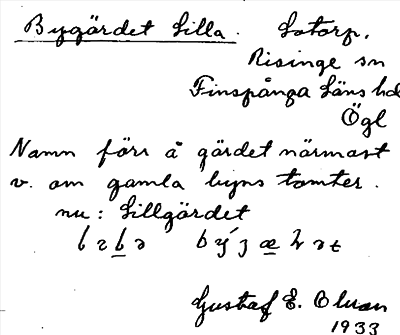 Bygärdet Lilla. Lotorp.
Risinge sn
Finspånga Läns hd
Ögl
Namn förr å gärdet närmast
v. om gamla byns tomter.
nu: Lillgärdet
Gustaf E. Olsson
1933